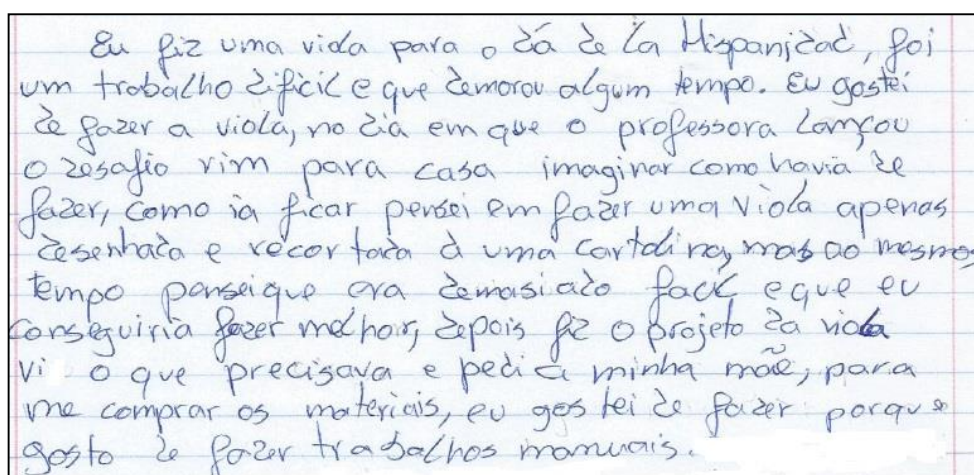 Eu fiz uma viola para o dá de La Hispanidad, foi
um trabalho dificil e que demorou algum tempo. Eu gostei
de fazer a viola, no dia em que o professora lançou
o desafio vim para casa imaginar como havia de
fazer, como ia ficar pensei em fazer uma viola apenas
desenhada e recortada d uma cartolina, mas ao mesmo
tempo pensei que era demasiado facil, e que eu
conseguiria fazer melhor, depois fiz o projeto da viola
vi o que precisava e pedi a minha mãe, para
me comprar os materiais, eu gostei de fazer porque
gosto de fazer trabalhos manuais.